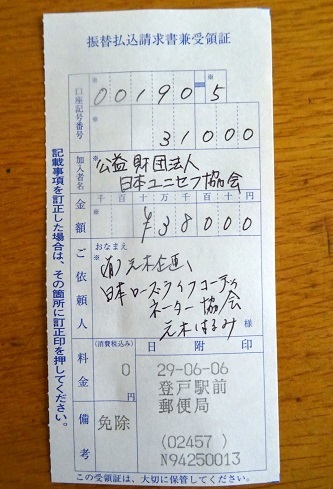 振替払込請求書兼受領証
口座記号番号
00190 5
31000
加入者名
公益財団法人
日本ユニセフ協会
金額
千百十万千百十円
¥38000
ご依頼人
おなまえ
(有)元木企画、
日本ローズライフコーディ
ネーター協会
元木はるみ 様
料金
(消費税込み)
0
円
備考
免除
日附印
29-06-06
登戸駅前
郵便局
(02457 )
N94250013
記載事項を訂正した場合は、その箇所に訂正印を押してください。
この受領証は、大切に保管してください。